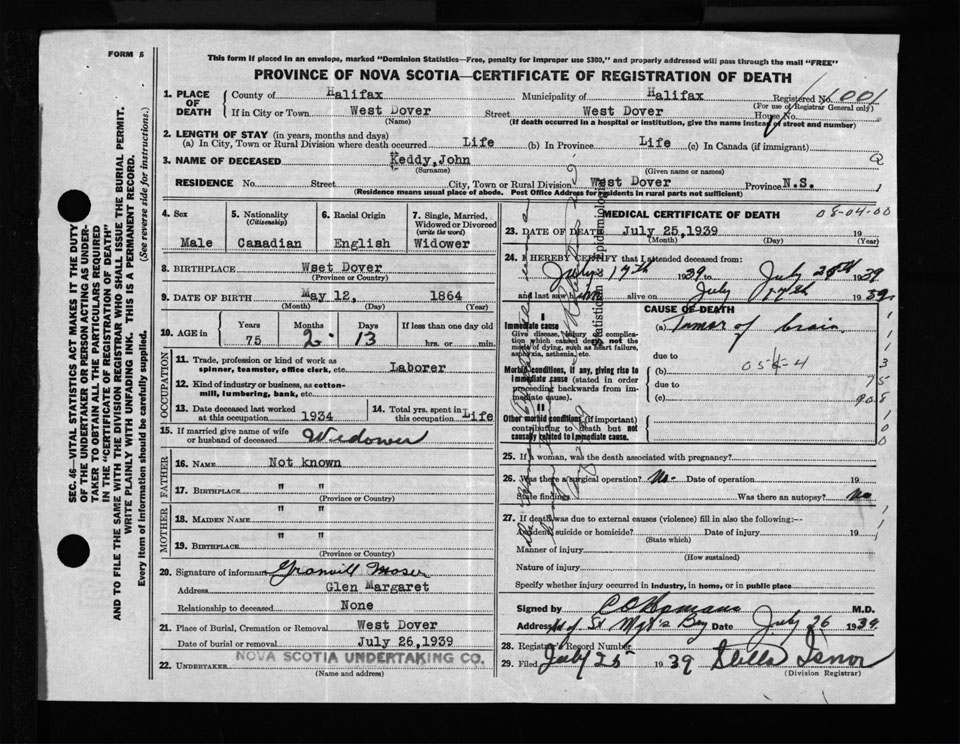 FORM 5
This form if placed in an envelope, marked "Dominion Statistics—Free, penalty for improper use $300," and properly addressed will pass through the mail "FREE"
PROVINCE OF NOVA SCOTIA—CERTIFICATE OF REGISTRATION OF DEATH
1. PLACE OF DEATH
County of Halifax Municipality of Halifax Registered No. 1001
(For use of Registrar General only)
If in City or Town West Dover Street West Dover House No.
(Name) (If death occurred in a hospital or institution, give the name instead of street and number)
2. LENGTH OF STAY (in years, months and days)
(a) In City, Town or Rural Division where death occurred Life (b) In Province Life (c) In Canada (if immigrant)
3. NAME OF DECEASED Keddy, John
(Surname) (Given name or names)
RESIDENCE No. Street City, Town or Rural Division West Dover Province N.S.
(Residence means usual place of abode. Post Office Address for residents in rural parts not sufficient)
4. Sex
Male
5. Nationality (Citizenship)
Canadian
6. Racial Origin
English
7. Single, Married, Widowed or Divorced (write the word)
Widower
8. BIRTHPLACE Wset Dover
(Province or Country)
9. DATE OF BIRTH May 12, 1864
(Month) (Day) (Year)
10. AGE in
Years Months Days If less than one day old
75 2 13 hrs. or min.
OCCUPATION
11. Trade, profession or kind of work as spinner, teamster, office clerk, etc. Laborer
12. Kind of industry or business, as cotton-mill, lumbering, bank, etc.
13. Date deceased last worked at this occupation 1934
14. Total yrs. spent in this occupation Life
15. If married give name of wife or husband of deceased Widower
FATHER
16. NAME Not known
17. BIRTHPLACE " "
(Province or Country)
MOTHER
18. MAIDEN NAME " "
19. BIRTHPLACE " "
(Province or Country)
20. Signature of informant Granvill Moser
Address Glen Margaret
Relationship to deceased None
21. Place of Burial, Cremation or Removal West Dover
Date of burial or removal July 26,1939
22. UNDERTAKER NOVA SCOTIA UNDERTAKING CO.
(Name and address)
MEDICAL CERTIFICATE OF DEATH
08-04-00
23. DATE OF DEATH July 25,1939 19
(Month) (Day) (Year)
24. I HEREBY CERTIFY that I attended deceased from:
July 17th 1939 to July 25th 1939
and last saw him alive on July 1939
CAUSE OF DEATH
I
Immediate cause
Give disease, injury or complication which caused death, not the mode of dying, such as heart failure, asphyxia, asthenia, etc.
(a) Tumor of brain
due to
Morbid conditions, if any, giving rise to immediate cause (stated in order proceeding backwards from immediate cause).
(b) 054-4
due to
(c)
II
Other morbid conditions (if important) contributing to death but not causally related to immediate cause.
25. If a woman, was the death associated with pregnancy?
26. Was there a surgical operation? No. Date of operation 19
State findings Was there an autopsy? No
27. If death was due to external causes (violence) fill in also the following:—
Accident, suicide or homicide? Date of injury 19
(State which)
Manner of injury
(How sustained)
Nature of injury
Specify whether injury occurred in industry, in home, or in public place
Signed by M.D.
Address Bay Date July 26 1939
28. Registrar's Record Number
29. Filed July 25 1939 Stella Isnor
(Division Registrar)
SEC. 46—VITAL STATISTICS ACT MAKES IT THE DUTY
OF THE UNDERTAKER OR PERSON ACTING AS UNDER-
TAKER TO OBTAIN ALL THE PARTICULARS REQUIRED
IN THE "CERTIFICATE OF REGISTRATION OF DEATH"
AND TO FILE THE SAME WITH THE DIVISION REGISTRAR WHO SHALL ISSUE THE BURIAL PERMIT.
WRITE PLAINLY WITH UNFADING INK. THIS IS A PERMANENT RECORD.
Every item of information should be carefully supplied. (See reverse side for instructions.)